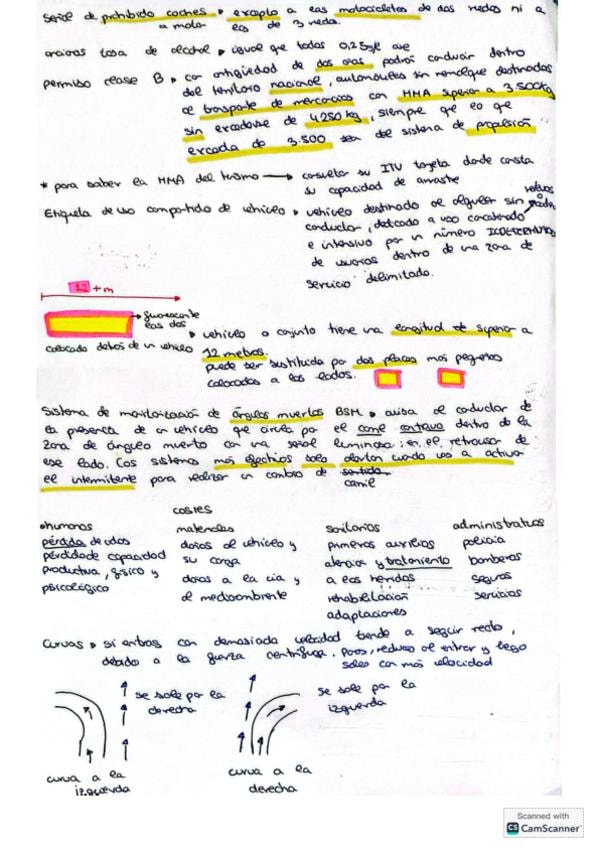 señal de prohibido coches → excepto a las motocicletas de dos ruedas ni a
motos de 3 rueda.
ancianos tasa de alcohol → igual que todos 0,25g/l aire
permiso clase B → con antigüedad de dos años podrá conducir dentro
del territorio nacional, automóviles sin remolque destinados
al transporte de mercancías con MMA superior a 3.500kg
sin excederse de 4250 kg, siempre que lo que
exceda de 3.500 sea del sistema de propulsión
* para saber la MMA del → consultar su ITV tarjeta donde consta
su capacidad de arrastre
Etiqueta de uso compartido de vehículo → vehículo destinado al alquiler sin
conductor, dedicado a uso concatenado
e intensivo por un número INDETERMINADO
de usuarios dentro de una zona de
servicio delimitado.
12 + m
→ vehículo o conjunto tiene una longitud superior a
colocado detrás de un vehículo 12 metros.
puede ser sustituida por dos placas más pequeñas
colocadas a los lados.
Sistema de monitorización de ángulos muertos BSM → avisa al conductor de
la presencia de un vehículo que circula por el carril contiguo dentro de la
zona de ángulo muerto con una señal luminosa en el retrovisor de
ese lado. Los sistemas más efectivos solo alertan cuando vas a activar
el intermitente para realizar un cambio de sentido
carril
costes
humanos materiales sanitarios administrativos
pérdida de vidas daños al vehículo y primeros auxilios policía
pérdida de capacidad su carga atención y tratamiento bomberos
productiva, físico y daños a la vía y a los heridos seguros
psicológico el medioambiente rehabilitación servicios
adaptaciones
curvas → si entras con demasiada velocidad tiende a seguir recto,
debido a la fuerza centrífuga. Pasos, reduces al entrar y luego
sales con más velocidad
se sale por la
derecha
se sale por la
izquierda
curva a la
izquierda
curva a la
derecha
Scanned with
CS CamScanner